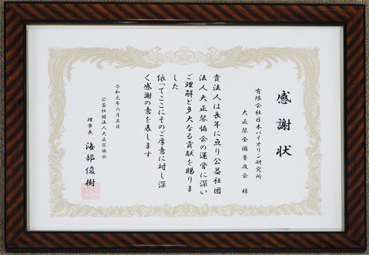 感謝状
有限会社日本バイオリン研究所
大正琴全国普及会 様
貴法人は長年に亘り公益社団
法人大正琴協会の運営に深い
ご理解と多大なる貢献を賜りま
した
依ってここにそのご厚意に対し深
く感謝の意を表します
令和元年六月五日
公益社団法人大正琴協会
理事長 海部俊樹